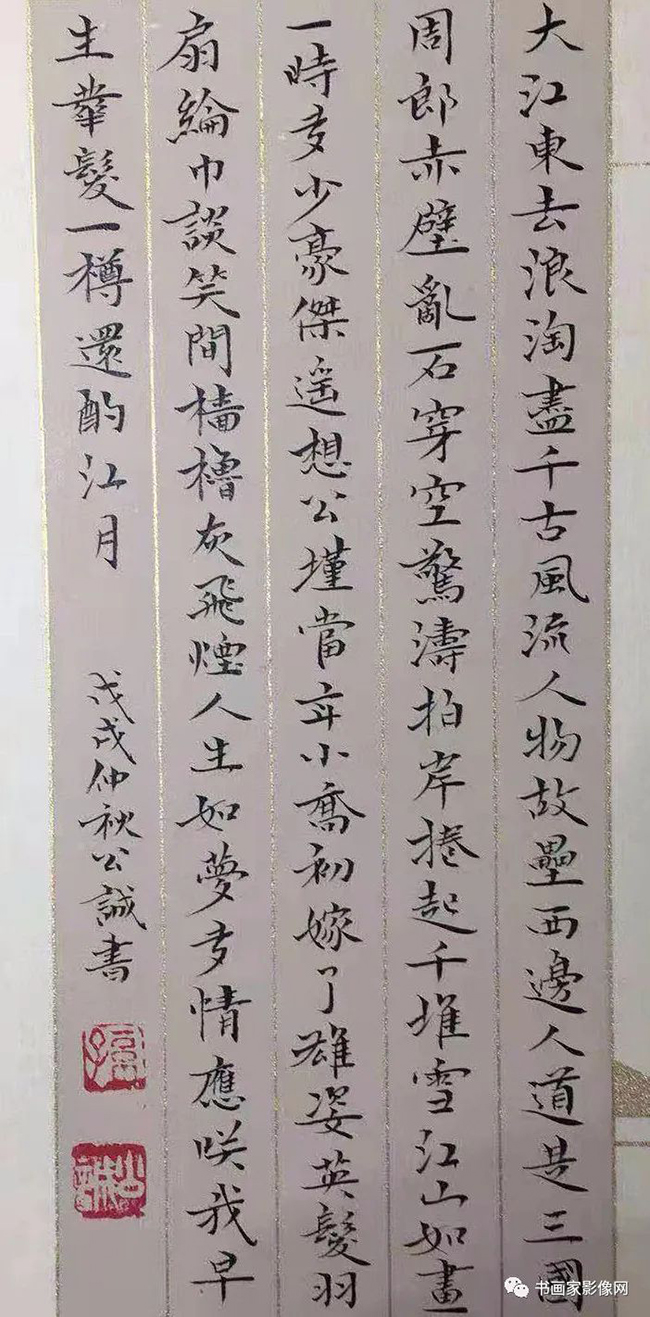 大江東去浪淘盡千古風流人物故壘西邊人道是三國
周郎赤壁亂石穿空驚濤拍岸捲起千堆雪江山如畫
一時多少豪傑遥想公瑾當年小喬初嫁了雄姿英髮羽
扇綸巾談笑間檣櫓灰飛煙人生如夢多情應咲我早
生華髮一樽還酌江月
戊戌仲秋公誠書
书画家影像网